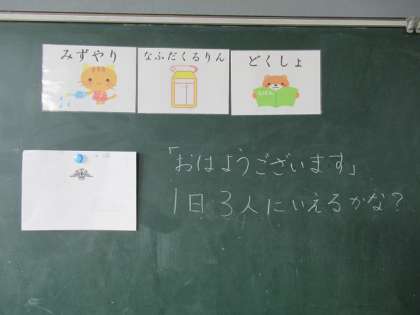 みずやり
なふだくるりん
どくしょ
「おはようございます」
1日3人にいえるかな?